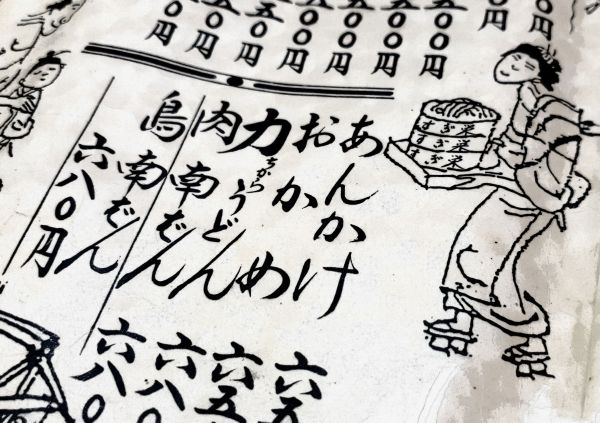 〇円
円
〇〇円
〇〇円
〇〇円
〇〇円
五〇円
五〇円
〇円
あんかけ
おかめ
力うどん
ちから
肉南ばん
鳥南ばん
六八〇円
六五
六五
六八〇
六八〇